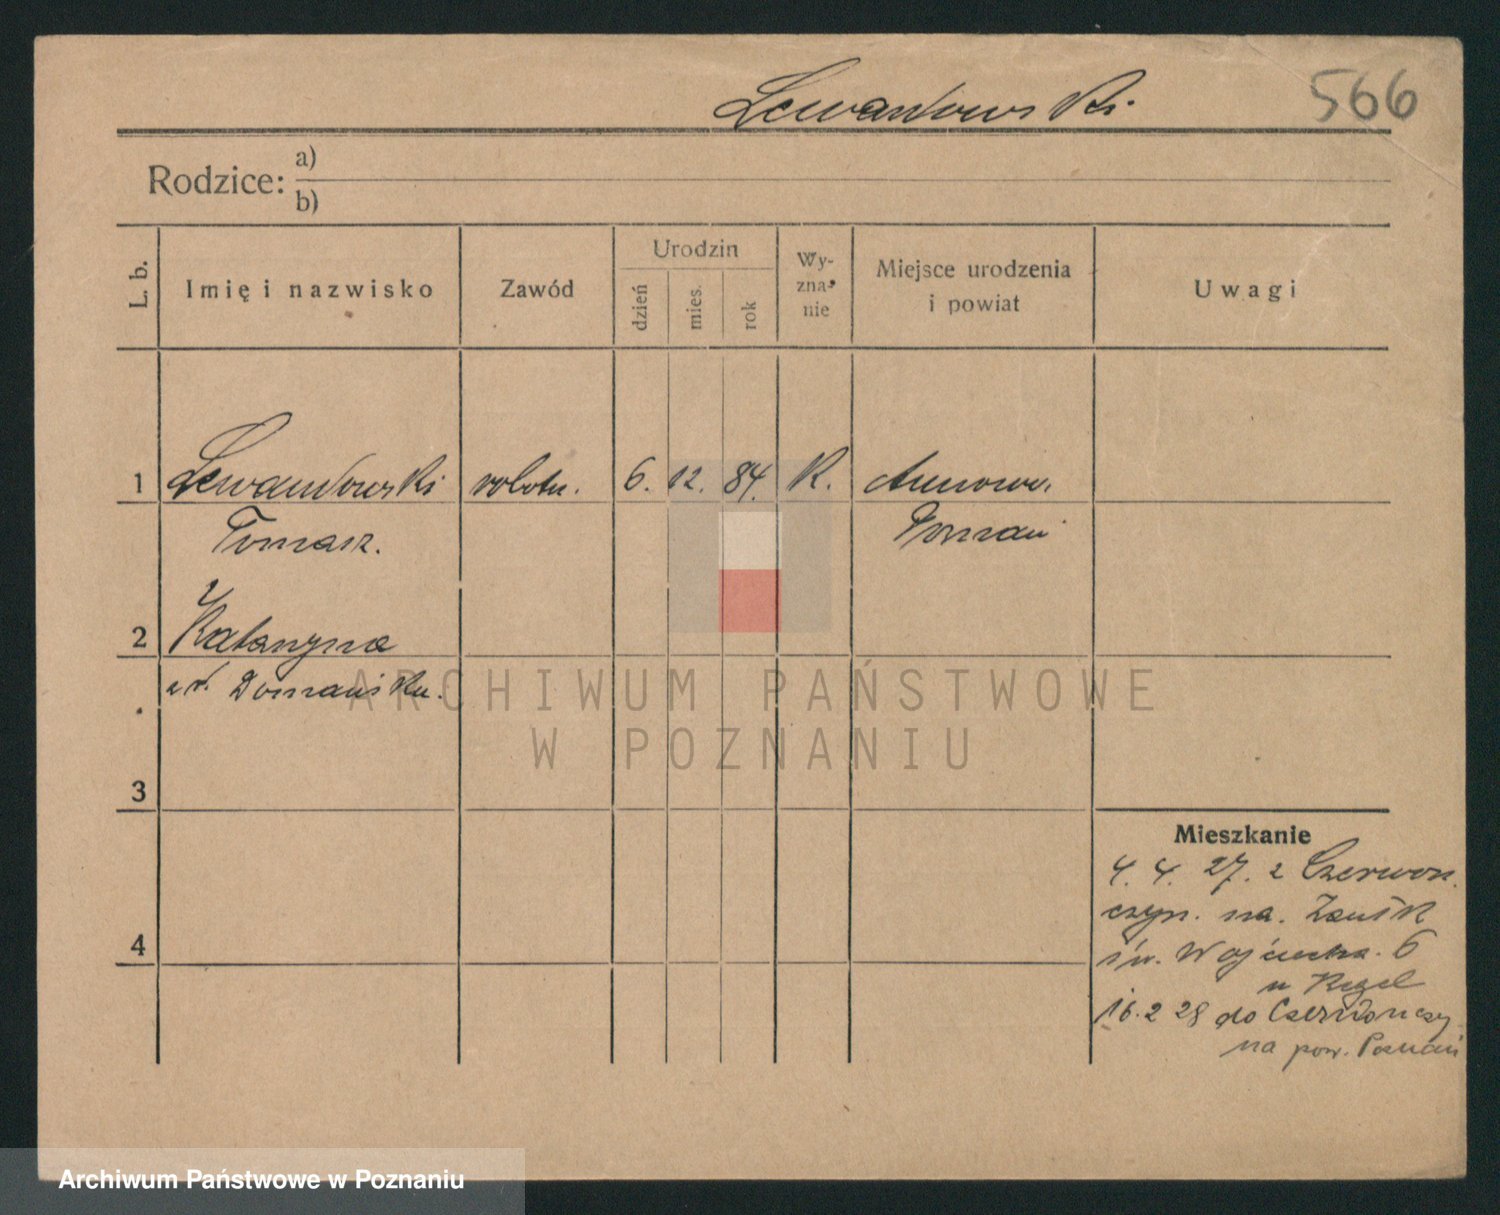 Lewandowski 566
Rodzice: a)
b)
L. b. Imię i nazwisko Zawód Urodzin dzień mies. rok Wy-zna-nie Miejsce urodzenia i powiat Uwagi
1 Lewandowski robotn. 6. 12. 84. R.
Tomasz. Poznań
2 Katarzyna
Domańska.
ARCHIWUM PAŃSTWOWE
W POZNANIU
3
Mieszkanie
4. 4. 27. z Czerwon
czyn. na.
4
św. Wojciecha. 6
u
16. 2 28 do Czerwonczy
na pow. Poznań
Archiwum Państwowe w Poznaniu